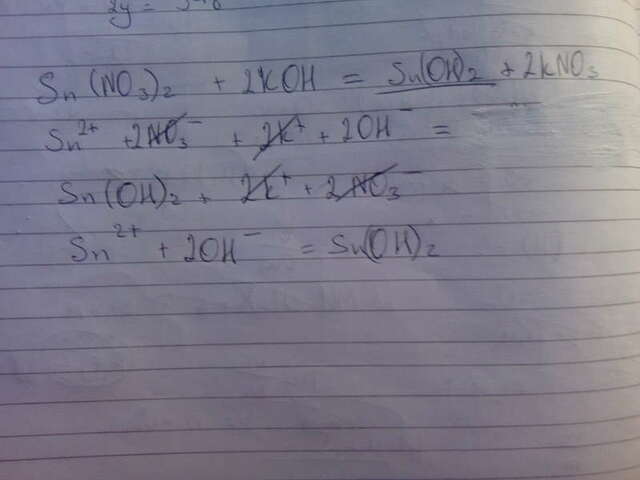 Sn(NO₃)₂ + 2KOH = Sn(OH)₂ + 2KNO₃
Sn²⁺ + 2NO₃⁻ + 2K⁺ + 2OH⁻ =
Sn(OH)₂ + 2K⁺ + 2NO₃⁻
Sn²⁺ + 2OH⁻ = Sn(OH)₂